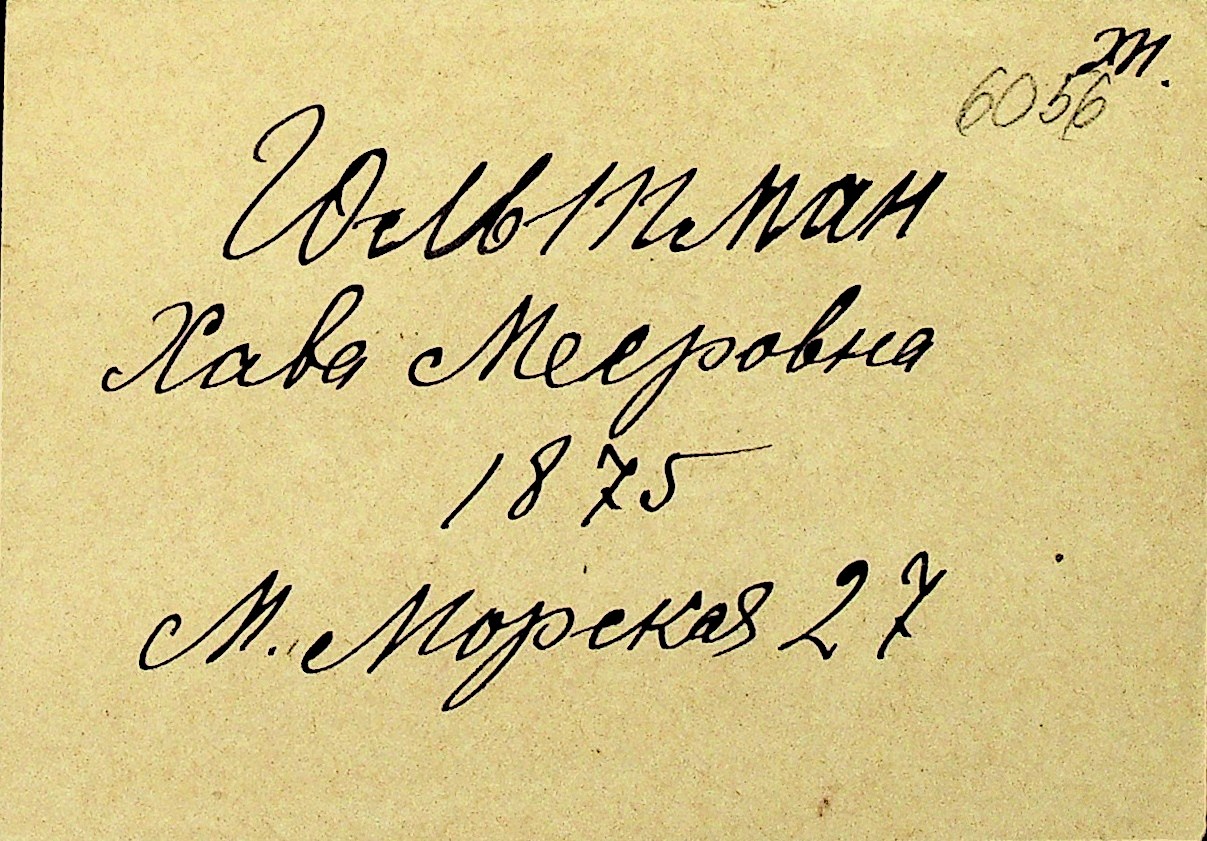 6056
Гольтман
Хава Мееровна
1875
М. Морская 27